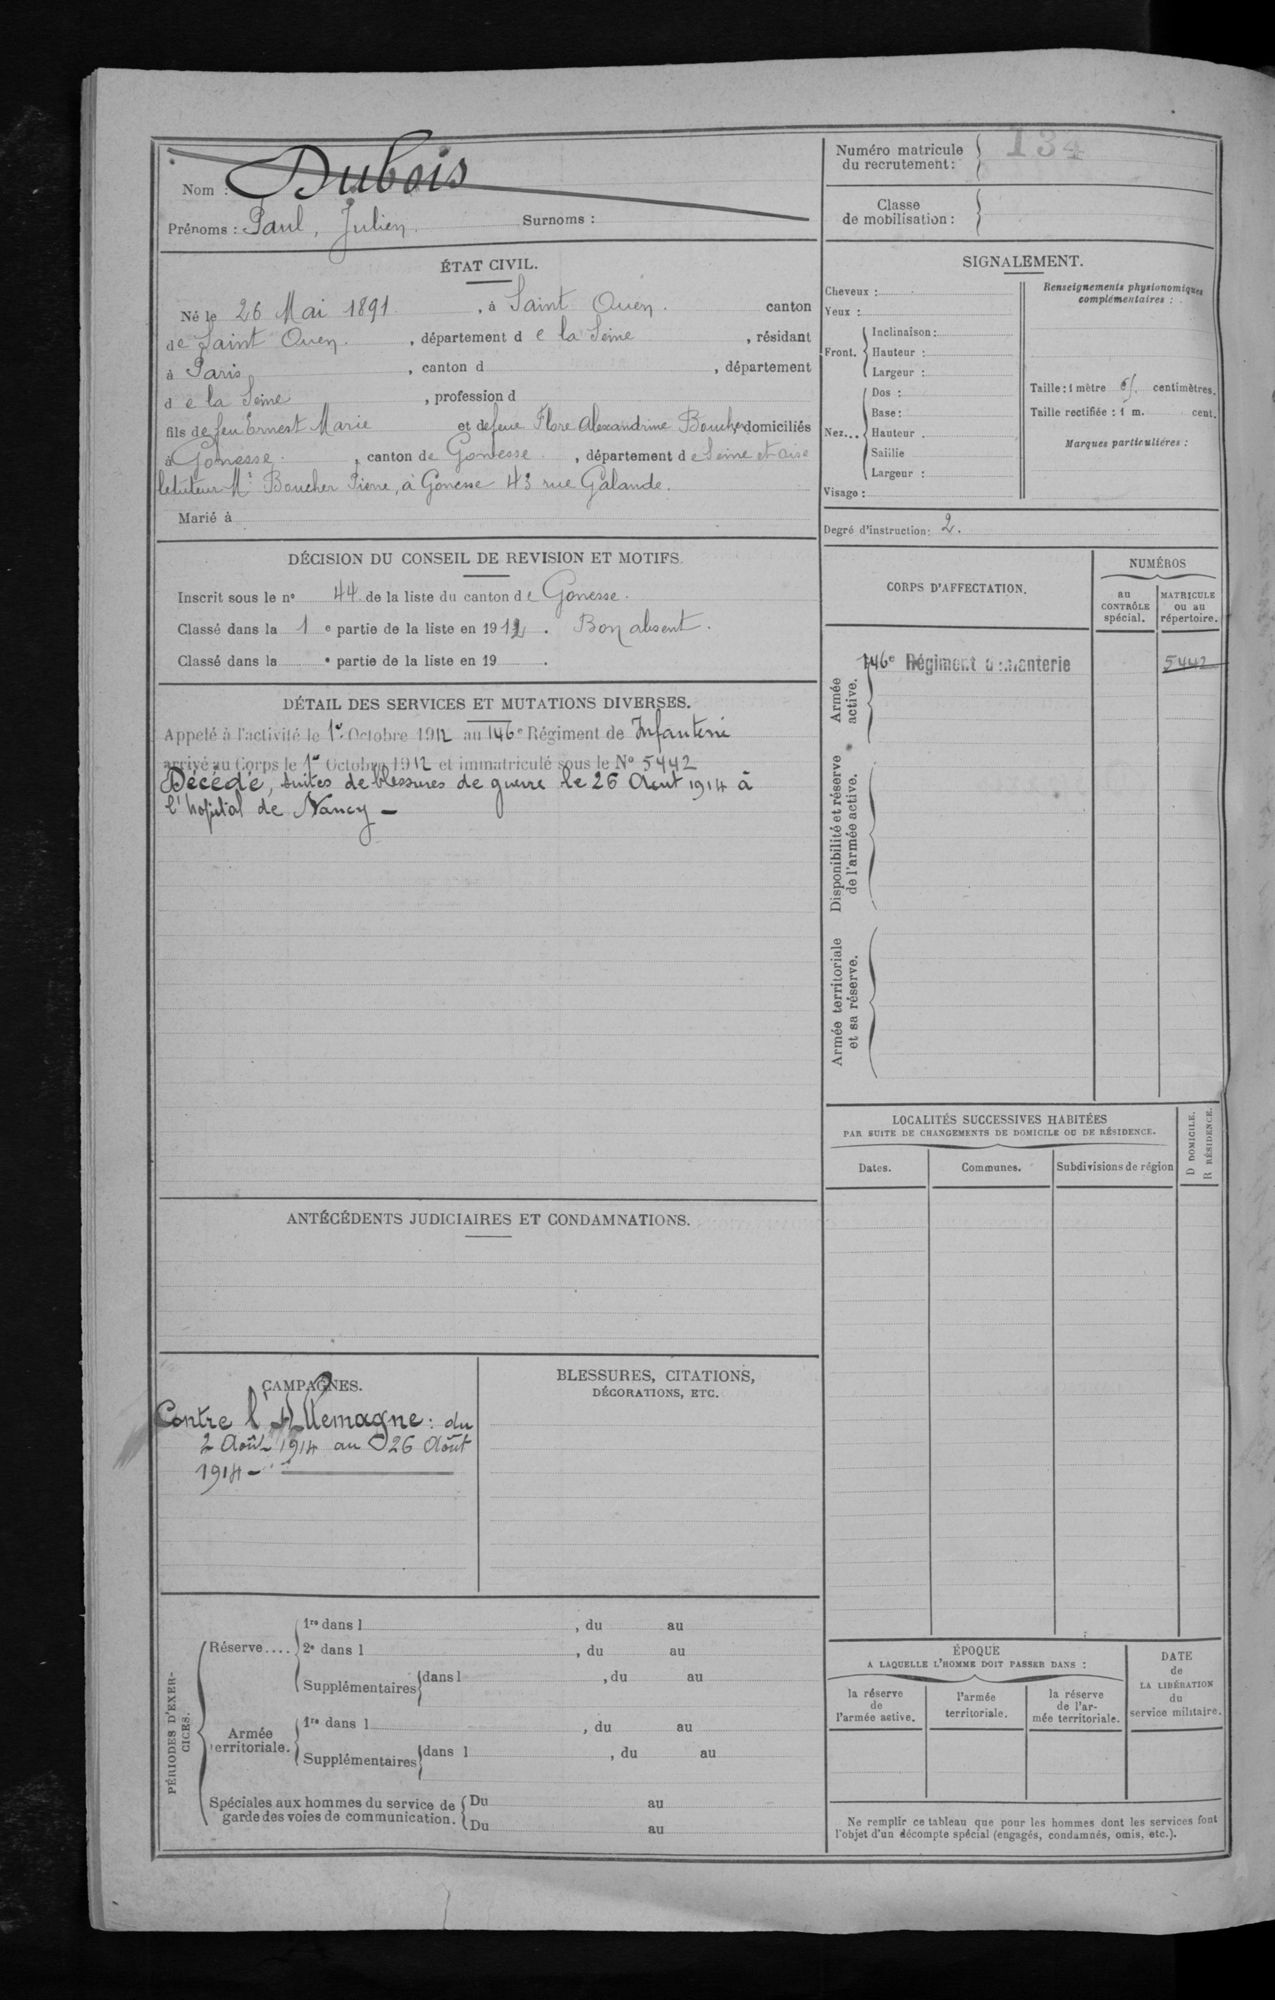 Nom : Dubois
Prénoms : Paul, Julien Surnoms :
ÉTAT CIVIL.
Né le 26 Mai 1891, à Saint Ouen. canton
de Saint Ouen, département de la Seine, résidant
à Paris, canton d , département
de la Seine, profession d
fils de feu Ernest Marie et de feue Flore Alexandrine Boucher domiciliés
à Gonesse, canton de Gonesse, département de Seine et oise
le tuteur Mr Boucher Pierre, à Gonesse 43 rue Galande.
Marié à
DÉCISION DU CONSEIL DE REVISION ET MOTIFS.
Inscrit sous le nº 44 de la liste du canton de Gonesse.
Classé dans la 1 e partie de la liste en 1912. Bon absent.
Classé dans la e partie de la liste en 19 .
DÉTAIL DES SERVICES ET MUTATIONS DIVERSES.
Appelé à l'activité le 1er Octobre 1912 au 146e Régiment de Infanterie
arrivé au Corps le 1er Octobre 1912 et immatriculé sous le Nº 5442
Décédé, suites de blessures de guerre le 26 Aout 1914 à
l'hopital de Nancy –
ANTÉCÉDENTS JUDICIAIRES ET CONDAMNATIONS.
CAMPAGNES.
Contre l'Allemagne : du
2 Août 1914 au 26 Août
1914 –
BLESSURES, CITATIONS,
DÉCORATIONS, ETC.
PÉRIODES D'EXER-
CICES.
Réserve....
1re dans l , du au
2e dans l , du au
Supplémentaires dans l , du au
Armée
territoriale.
1re dans l , du au
Supplémentaires dans l , du au
Spéciales aux hommes du service de
garde des voies de communication.
Du au
Du au
Numéro matricule
du recrutement : 134
Classe
de mobilisation :
SIGNALEMENT.
Cheveux :
Yeux :
Front.
Inclinaison :
Hauteur :
Largeur :
Nez...
Dos :
Base :
Hauteur .
Saillie
Largeur :
Visage :
Renseignements physionomiques
complémentaires :
Taille : 1 mètre centimètres.
Taille rectifiée : 1 m. cent.
Marques particulières :
Degré d'instruction : 2.
CORPS D'AFFECTATION.
NUMÉROS
au
CONTRÔLE
spécial.
MATRICULE
ou au
répertoire.
Armée
active.
146e Régiment d'Infanterie 5442
Disponibilité et réserve
de l'armée active.
Armée territoriale
et sa réserve.
LOCALITÉS SUCCESSIVES HABITÉES
PAR SUITE DE CHANGEMENTS DE DOMICILE OU DE RÉSIDENCE.
Dates.
Communes.
Subdivisions de région
D DOMICILE.
R RÉSIDENCE.
ÉPOQUE
A LAQUELLE L'HOMME DOIT PASSER DANS :
la réserve
de
l'armée active.
l'armée
territoriale.
la réserve
de l'ar-
mée territoriale.
DATE
de
LA LIBÉRATION
du
service militaire.
Ne remplir ce tableau que pour les hommes dont les services font
l'objet d'un décompte spécial (engagés, condamnés, omis, etc.).